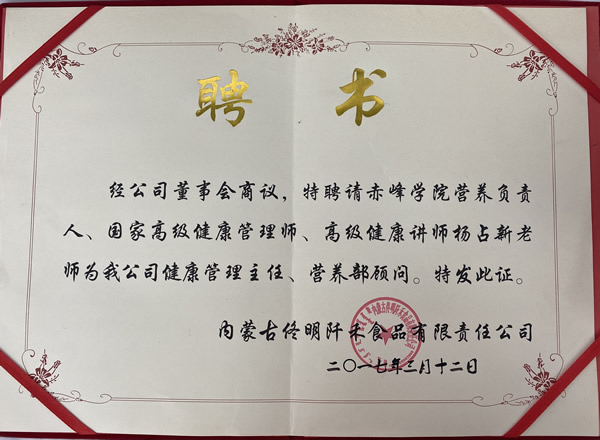 聘 书
经公司董事会商议，特聘请赤峰学院营养负责
人、国家高级健康管理师、高级健康讲师杨占新老
师为我公司健康管理主任、营养部顾问。特发此证。
内蒙古佟明阡禾食品有限责任公司
二〇一七年三月十二日